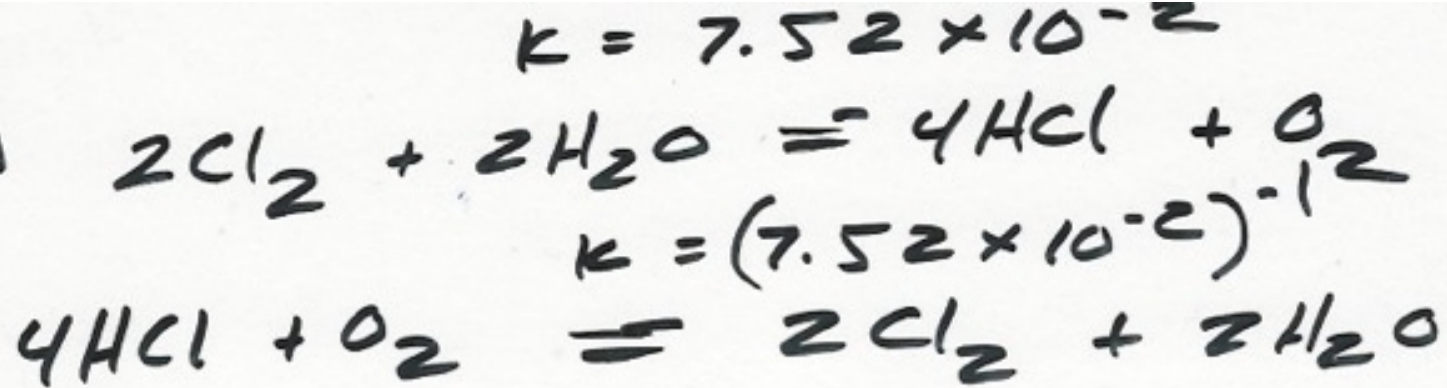 K = 7.52 × 10⁻²
2Cl₂ + 2H₂O = 4HCl + O₂
K = (7.52 × 10⁻²)⁻¹
4HCl + O₂ = 2Cl₂ + 2H₂O